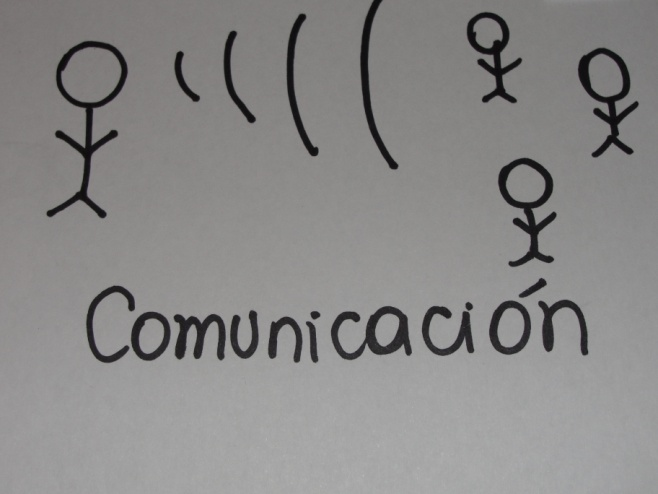 Comunicación